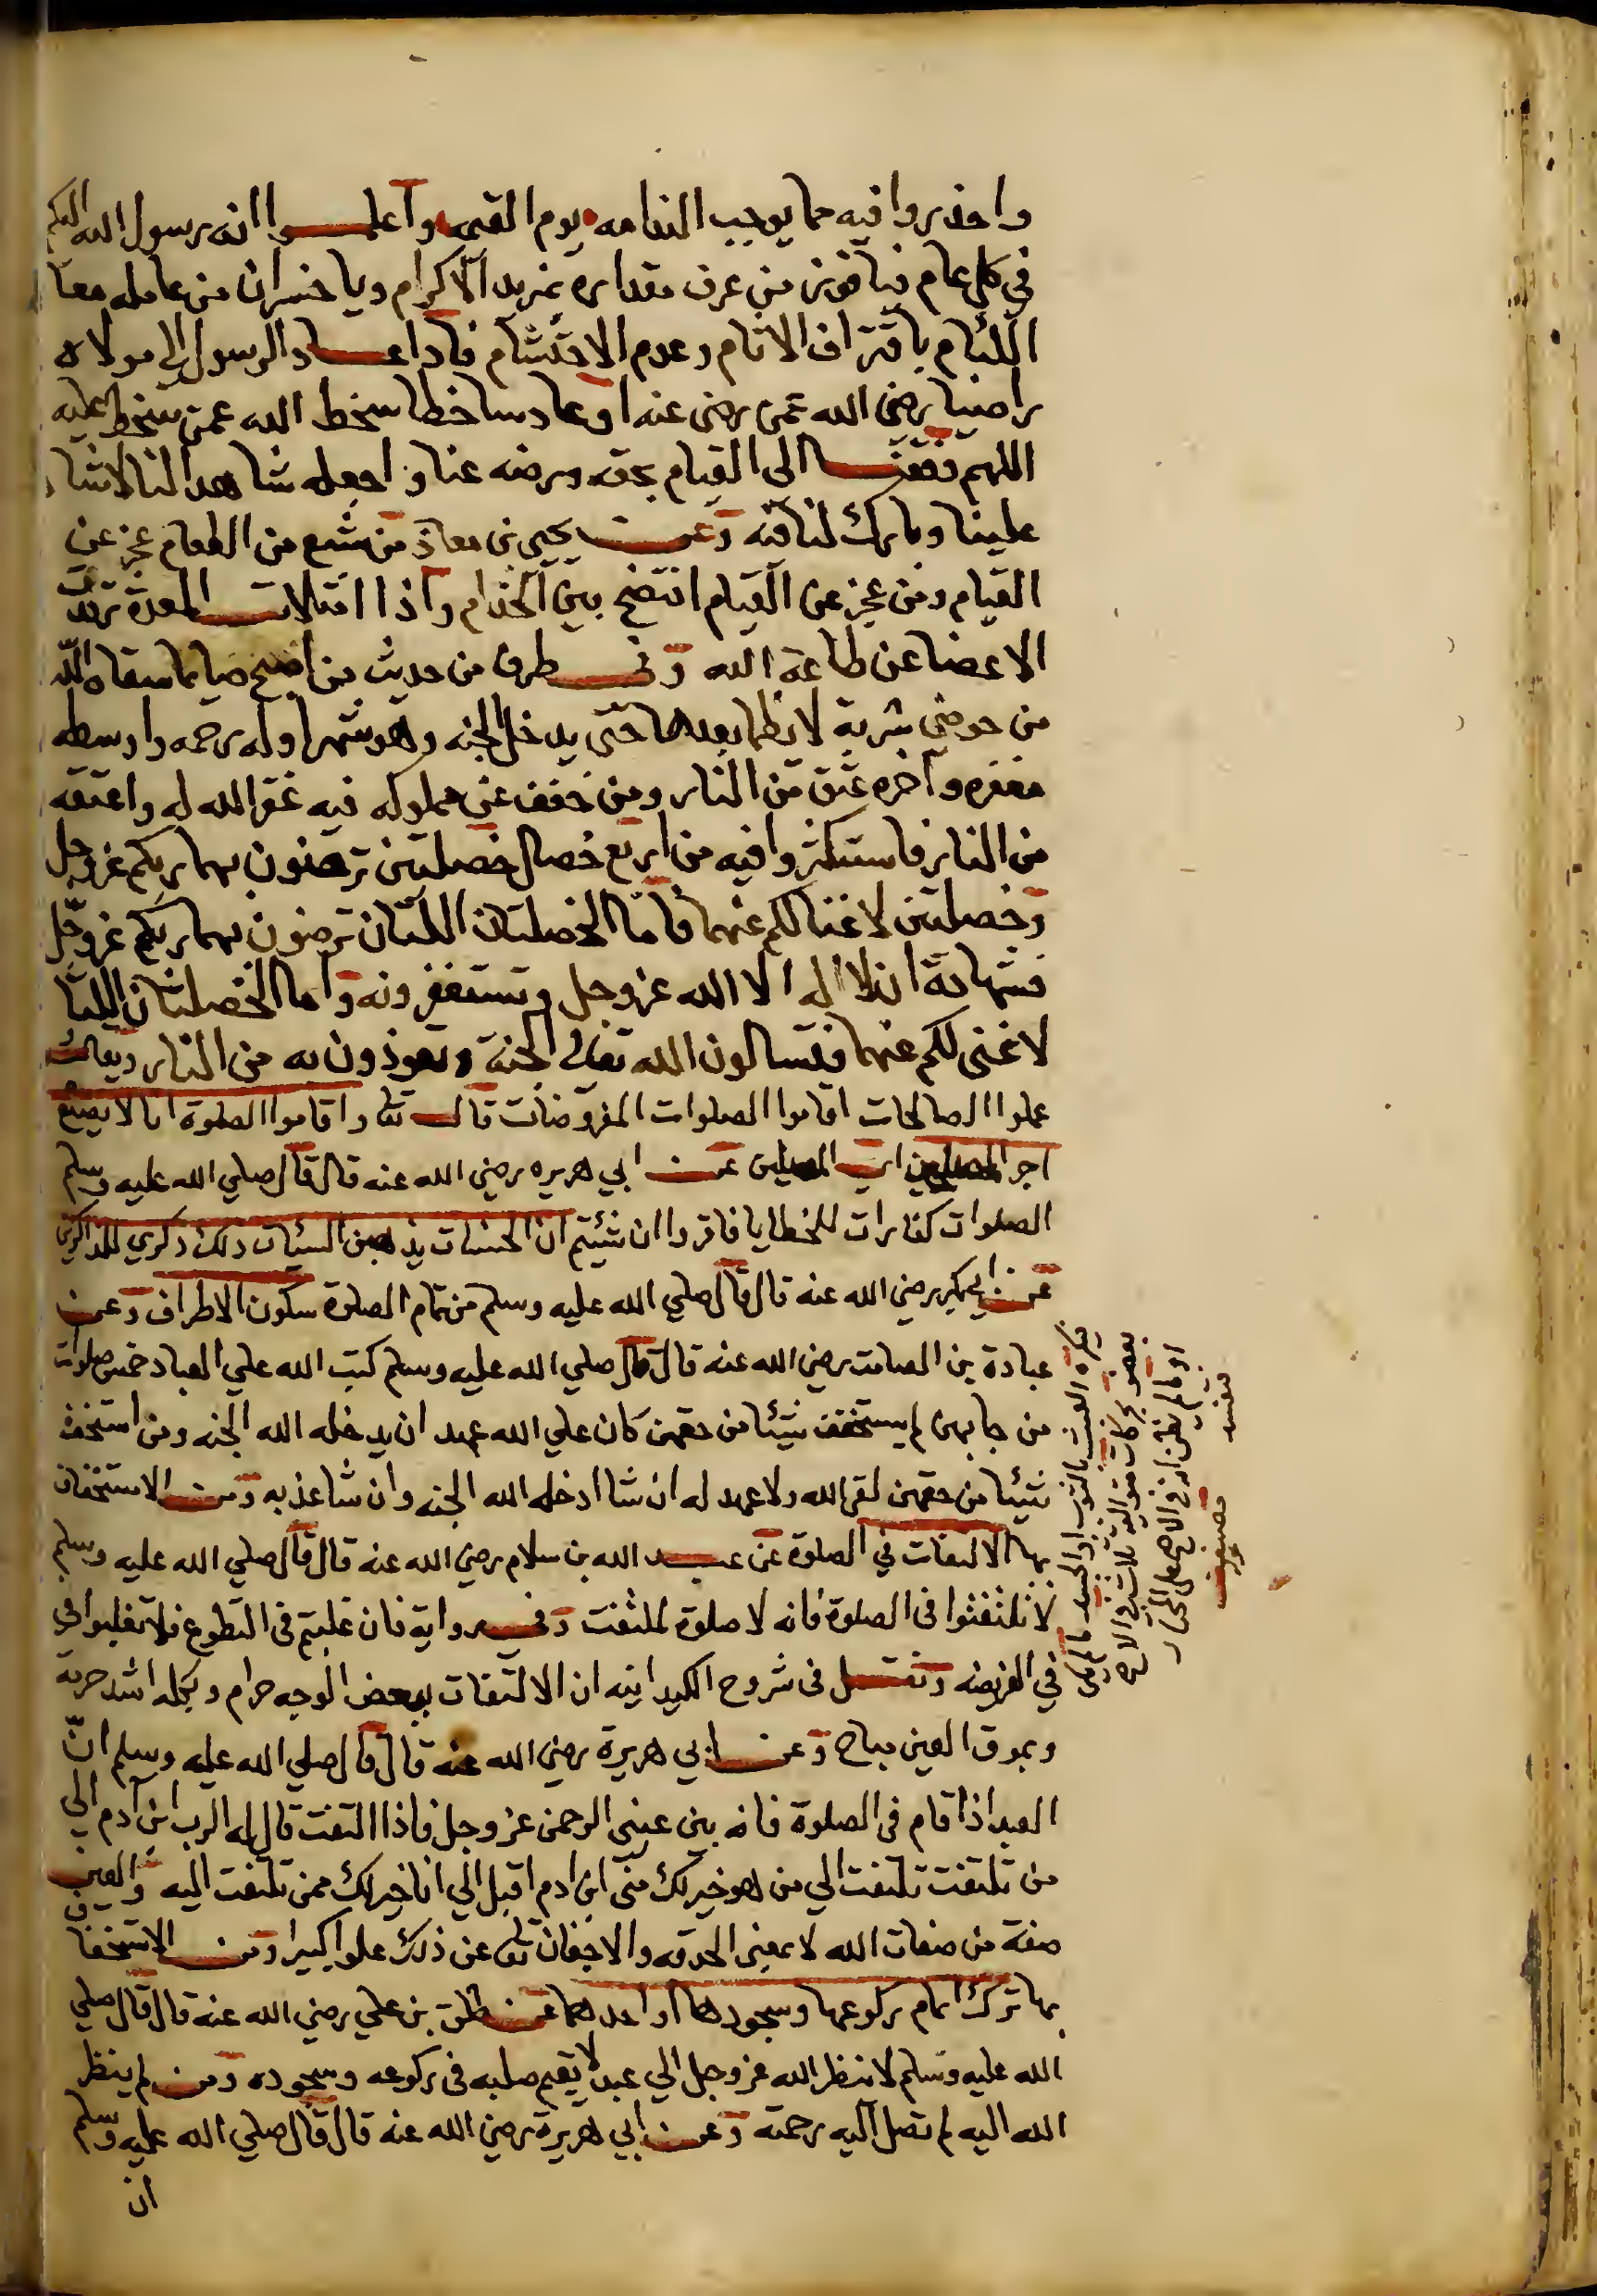 واحذروا فيه مما يوجب الندامه يوم القيمه واعلموا انه رسول الله اليكم
في كل عام فيا فوز من عرف مقداره بمزيد الاكرام ويا خسران من عامله معا
اللئام باقتراف الاثام وعدم الاحتشام فاذا عاد الرسول الى مولاه
راضيا رضي الله عمن رضى عنه او عاد ساخطا سخط الله عمن سخط عليه
اللهم وفقنا الى القيام بحقه ورضه عنا واجعله شاهدا لنا لا شاهدا
علينا وبارك لنا فيه وعن يحيى بن معاذ من شبع من الطعام عجز عن
القيام ومن عجز عن القيام افتضح بين الخدام واذا امتلات المعدة
الاعضا عن طاعة الله وفي طرف من حديث من اصبح صايما سقاه الله
من حوضي شربة لا يظما بعدها حتى يدخل الجنه وهو شهر اوله رحمه واوسطه
مغفره وآخره عتق من النار ومن خفف عن مملوكه فيه غفر الله له واعتقه
من النار فاستكثروا فيه من اربع خصال خصلتين ترضون بهما ربكم عزوجل
وخصلتين لا غنا لكم عنهما فاما الخصلتان اللتان ترضون بهما ربكم عزوجل
فشهادة ان لا اله الا الله عزوجل وتستغفرونه واما الخصلتان اللتا
لا غنى لكم عنهما فتسالون الله تعالى الجنة وتعوذون به من النار
عملوا الصالحات اقاموا الصلوات المفروضات قال تعا واقاموا الصلوة انا لا نضيع
اجر المصلحين اي المصلين عن ابي هريره رضي الله عنه قال قال صلي الله عليه وسلم
الصلوات كفارات للخطايا فاقروا ان شئتم ان الحسنات يذهبن السيئات ذلك ذكري للذاكرين
عن ابي بكر رضي الله عنه قال قال صلي الله عليه وسلم من تمام الصلوة سكون الاطراف وعن
عبادة بن الصامت رضي الله عنه قال قال صلي الله عليه وسلم كتب الله علي العباد خمس صلوات
من جا بهن لم يستخفف شيئا من حقهن كان علي الله عهد ان يدخله الله الجنه ومن استخف
شيئا من حقهن لقي الله ولا عهد له ان شا ادخله الله الجنه وان شا عذبه ومن الاستخفاف
بها الالتفات في الصلوة عن عبد الله بن سلام رضي الله عنه قال قال صلي الله عليه وسلم
لا تلتفتوا في الصلوة فانه لا صلوة لملتفت وفي رواية فان غلبتم في التطوع فلا تغلبوا في
في الفريضه ونقل في شروح الكيدانيه ان الالتفات ببعض الوجه حرام وبكله اشد حرمة
وبموق العين مباح وعن ابي هريرة رضي الله عنه قال قال صلي الله عليه وسلم انّ
العبد اذا قام في الصلوة فانه بين عيني الرحمن عزوجل فاذا التفت قال له الرب ابن آدم الي
من تلتفت تلتفت الي من هو خير لك مني ابن ادم اقبل الي انا خير لك ممن تلتفت اليه والعين
صفة من صفات الله لا بمعنى الحدقه والاجفان تعا عن ذلك علوا كبيرا ومن الاستخفا
بها ترك اتمام ركوعها وسجودها او احدهما عن طلق بن علي رضي الله عنه قال قال صلي
الله عليه وسلم لا ينظر الله عزوجل الي عبد لا يقيم صلبه في ركوعه وسجوده ومن لم ينظر
الله اليه لم تصل اليه رحمته وعن ابي هريرة رضي الله عنه قال قال صلي الله عليه وسلم
ان
العبث بالثوب او الجسد ما لم